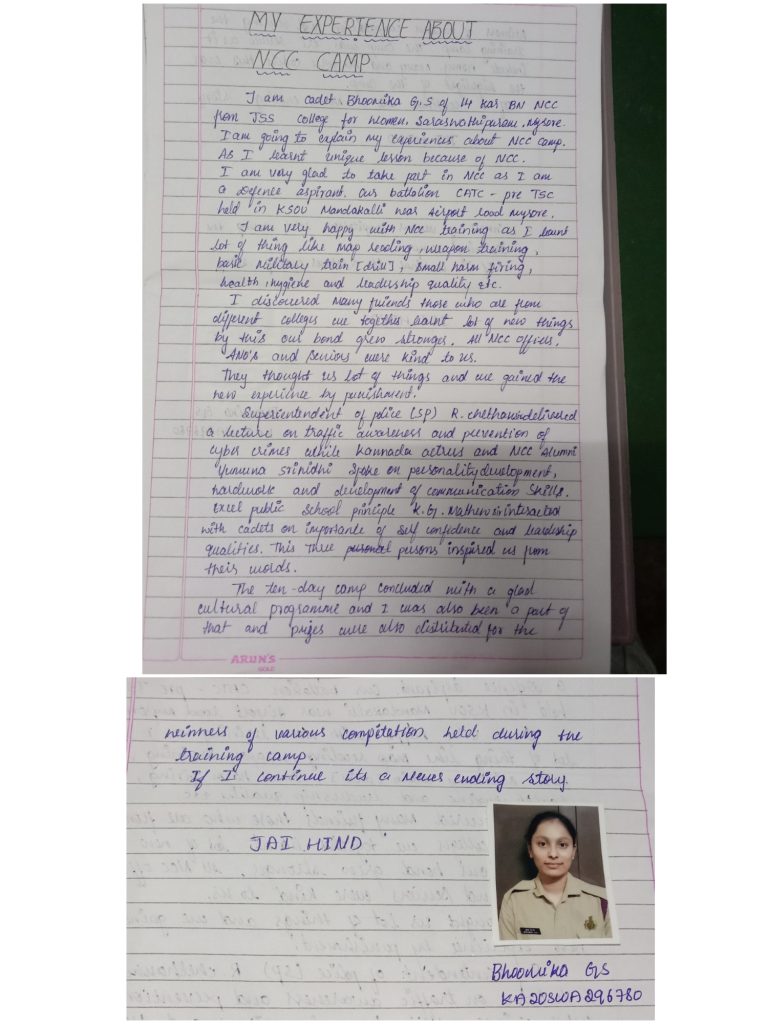 MY EXPERIENCE ABOUT
NCC CAMP
I am cadet Bhoomika G.S of 14 Kar BN NCC
from JSS College for women, Saraswathipuram, Mysore.
I am going to explain my experiences about NCC camp.
As I learnt unique lesson because of NCC.
I am very glad to take part in NCC as I am
a Defence aspirant. Our battalion CATC - pre TSC
held in KSOU Mandakalli near Airport road Mysore.
I am very happy with NCC training as I learnt
lot of thing like map reading, weapon training,
basic military train [drill], small harm firing,
health, hygiene and leadership quality etc.
I discovered many friends those who are from
different colleges we together learnt lot of new things
by this our bond grew stronger. All NCC officers,
ANO's and Seniors were kind to us.
They thought us lot of things and we gained the
new experience by punishment.
Superientendent of police (SP) R. chethan delivered
a lecture on traffic awareness and prevention of
cyber crimes while Kannada actress and NCC Alumni
Yumuna Srinidhi Spoke on personality development,
hardwork and development of communication skills.
Excel public School principle K.G. Mathew interacted
with cadets on importante of self confidence and leardship
qualities. This Three persons inspired us from
their words.
The ten-day camp concluded with a glad
cultural programme and I was also been a part of
that and prizes were also distributed for the
ARUN'S
weinners of various compitation held during the
training camp.
If I continue its a Never ending story.
JAI HIND
Bhoomika GS
KA20SWA296780